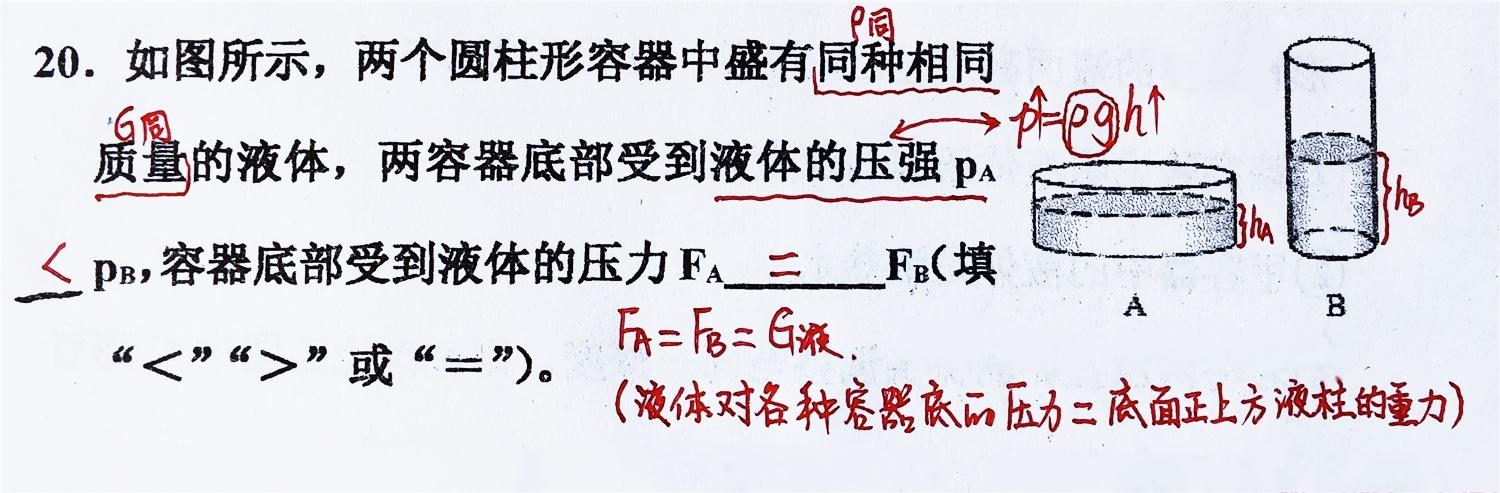 ρ同
20. 如图所示，两个圆柱形容器中盛有同种相同
G同
p↑=ρgh↑
质量的液体，两容器底部受到液体的压强 pA
hA
hB
< pB，容器底部受到液体的压力 FA = FB（填
A
B
“<”“>”或“=”）。
FA=FB=G液.
(液体对各种容器底的压力=底面正上方液柱的重力)